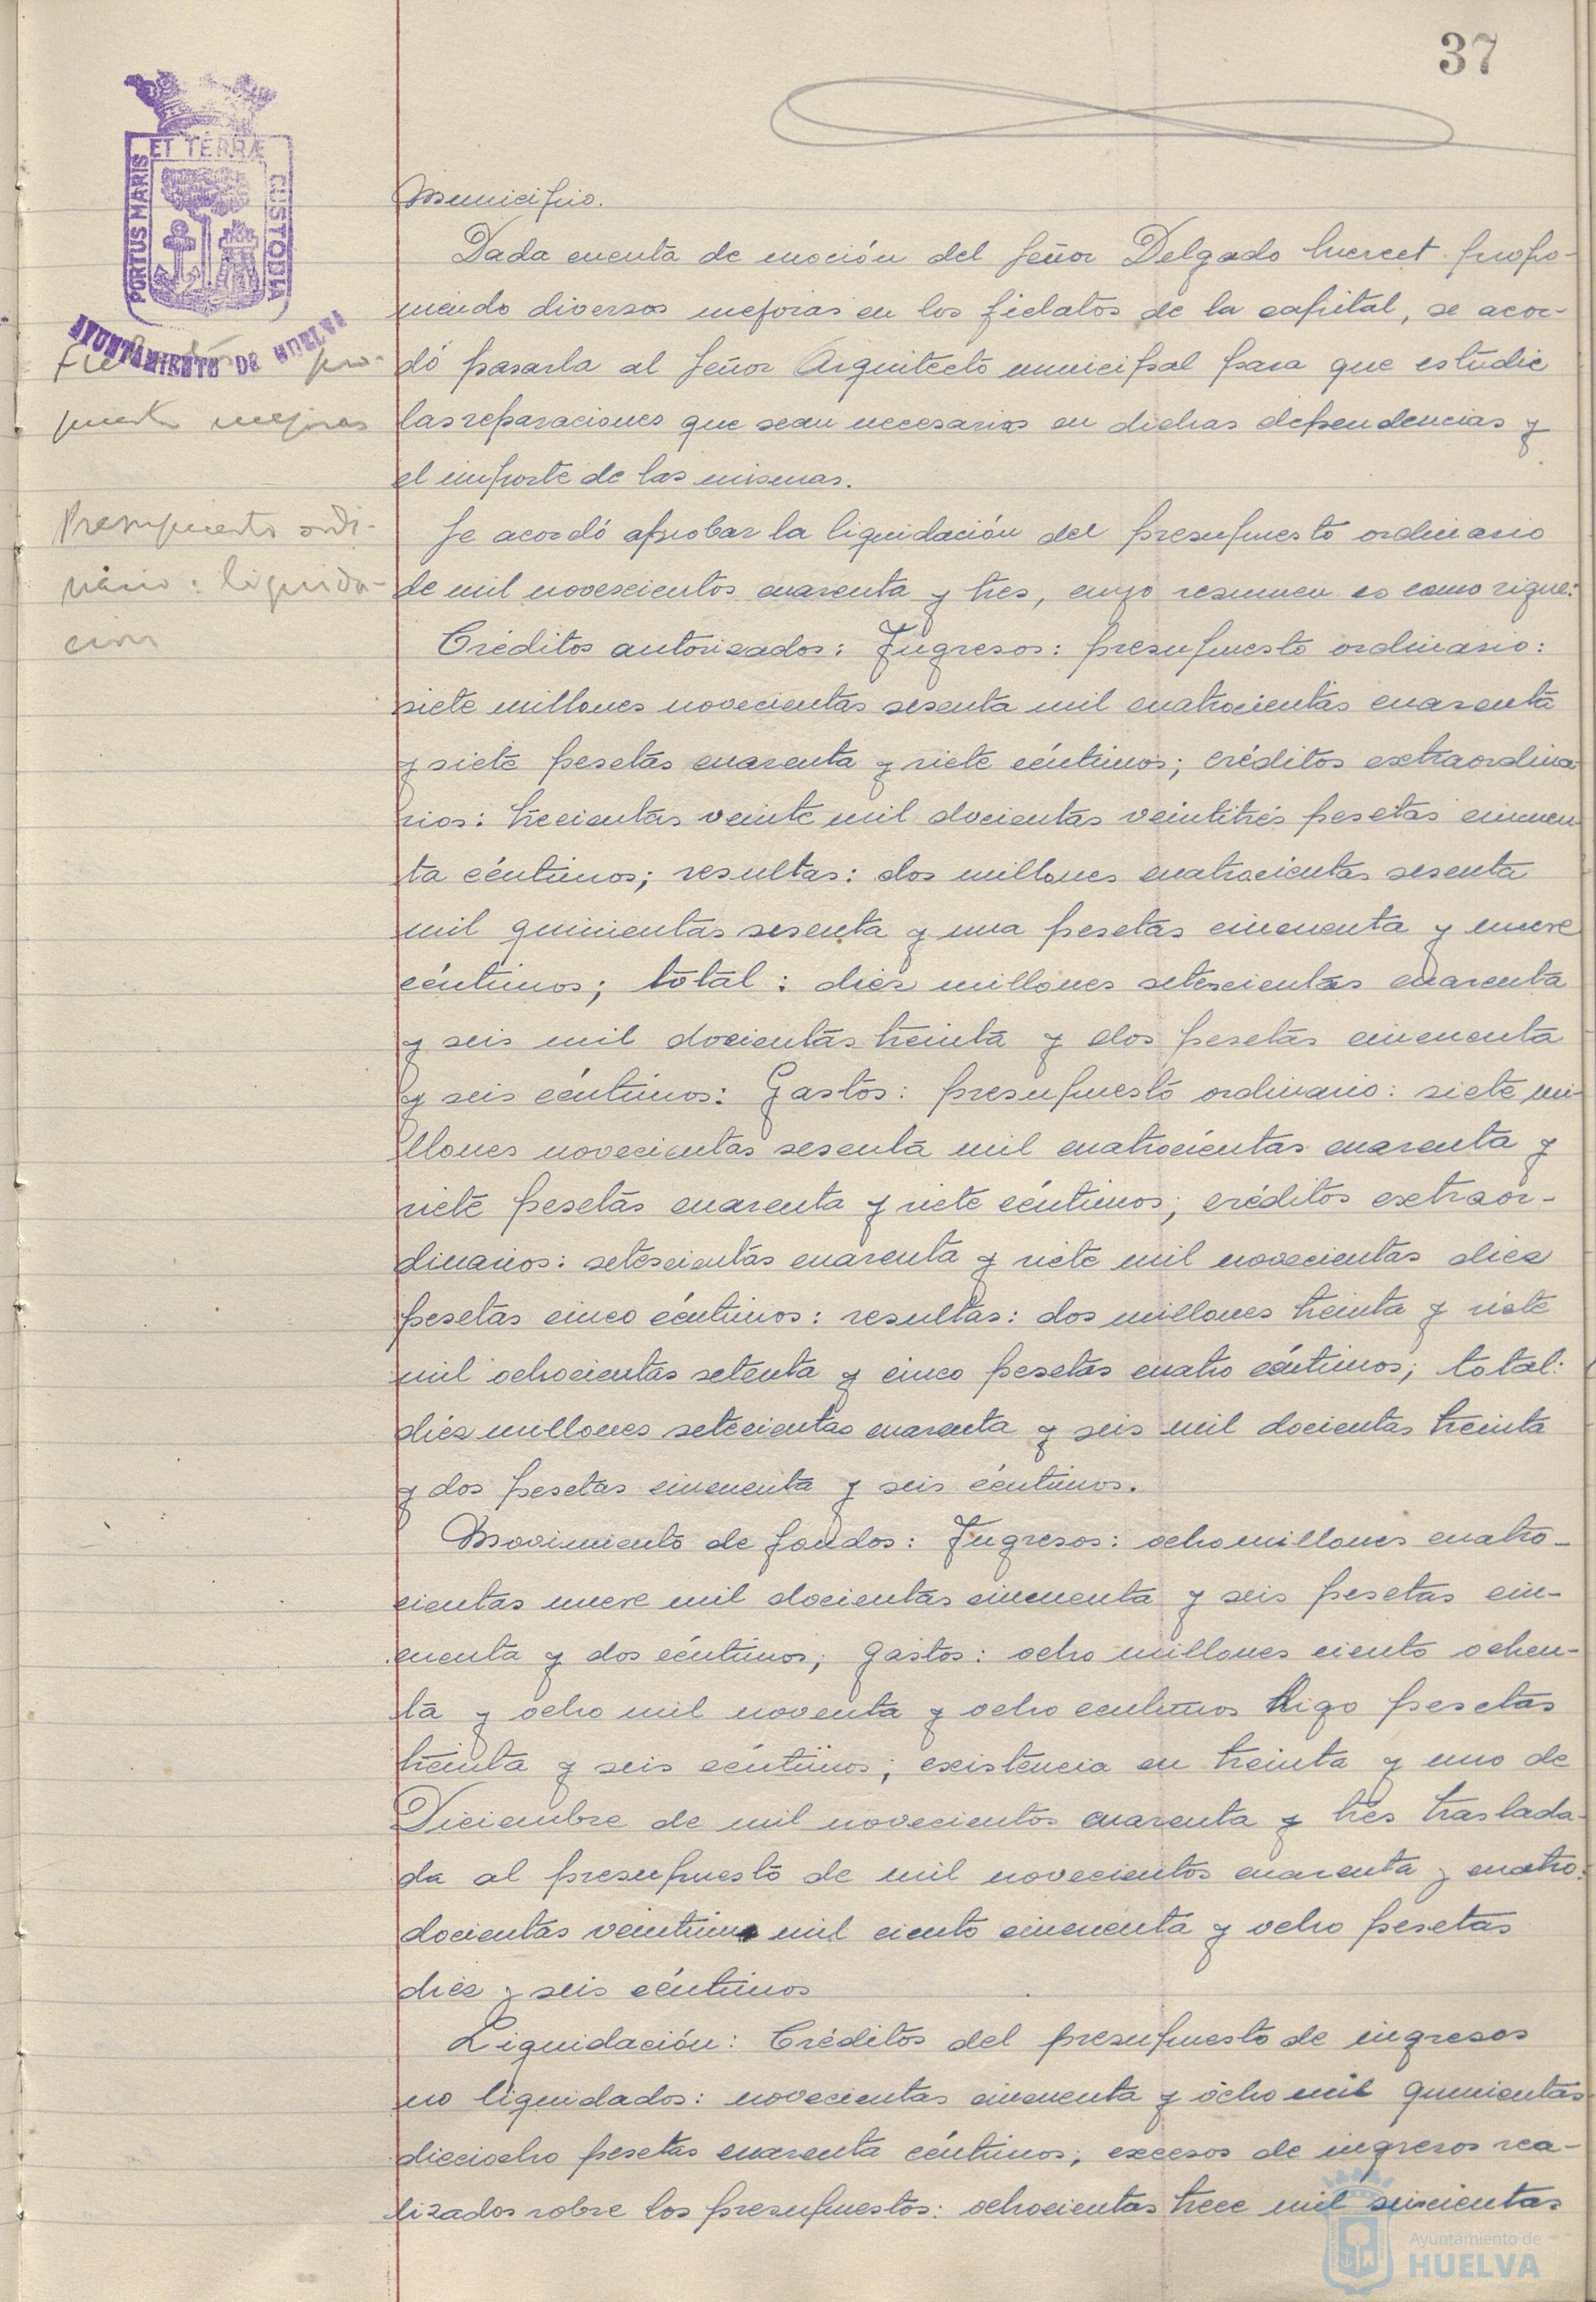 37
ET TERRÆ
PORTUS MARIS
CUSTODIA
AYUNTAMIENTO DE HUELVA
Municipio.
Dada cuenta de moción del Señor Delgado propo-
niendo diversas mejoras en los fielatos de la capital, se acor-
dó pasarla al Señor Arquitecto municipal para que estudie
las reparaciones que sean necesarias en dichas dependencias y
el importe de las mismas.
pro-
puestas mejoras
Presupuesto ordi-
nario: liquida-
cion
Se acordó aprobar la liquidación del presupuesto ordinario
de mil novescientos cuarenta y tres, cuyo resumen es como sigue:
Créditos autorizados: Ingresos: presupuesto ordinario:
siete millones novecientas sesenta mil cuatrocientas cuarenta
y siete pesetas cuarenta y siete céntimos; créditos extraordina
rios: trecientas veinte mil docientas veintitrés pesetas cincuen
ta céntimos; resultas: dos millones cuatrocientas sesenta
mil quinientas sesenta y una pesetas cincuenta y nueve
céntimos; total: diez millones setescientas cuarenta
y seis mil docientas treinta y dos pesetas cincuenta
y seis céntimos: Gastos: presupuesto ordinario: siete mi-
llones novecientas sesenta mil cuatrocientas cuarenta y
siete pesetas cuarenta y siete céntimos; créditos extraor-
dinarios: setescientas cuarenta y siete mil novecientas diez
pesetas cinco céntimos: resultas: dos millones treinta y siete
mil ochocientas setenta y cinco pesetas cuatro céntimos; total:
diez millones setecientas cuarenta y seis mil docientas treinta
y dos pesetas cincuenta y seis céntimos.
Movimiento de fondos: Ingresos: ocho millones cuatro-
cientas nueve mil docientas cincuenta y seis pesetas cin-
cuenta y dos céntimos; gastos: ocho millones ciento ochen-
ta y ocho mil noventa y ocho centimos digo pesetas
treinta y seis céntimos; existencia en treinta y uno de
Diciembre de mil novecientos cuarenta y tres traslada-
da al presupuesto de mil novecientos cuarenta y cuatro:
docientas veintiuna mil ciento cincuenta y ocho pesetas
diez y seis céntimos
Liquidación: Créditos del presupuesto de ingresos
no liquidados: novecientas cincuenta y ocho mil quinientas
dieciocho pesetas cuarenta céntimos; excesos de ingresos rea-
lizados sobre los presupuestos: ochocientas trece mil seiscientas
Ayuntamiento de
HUELVA